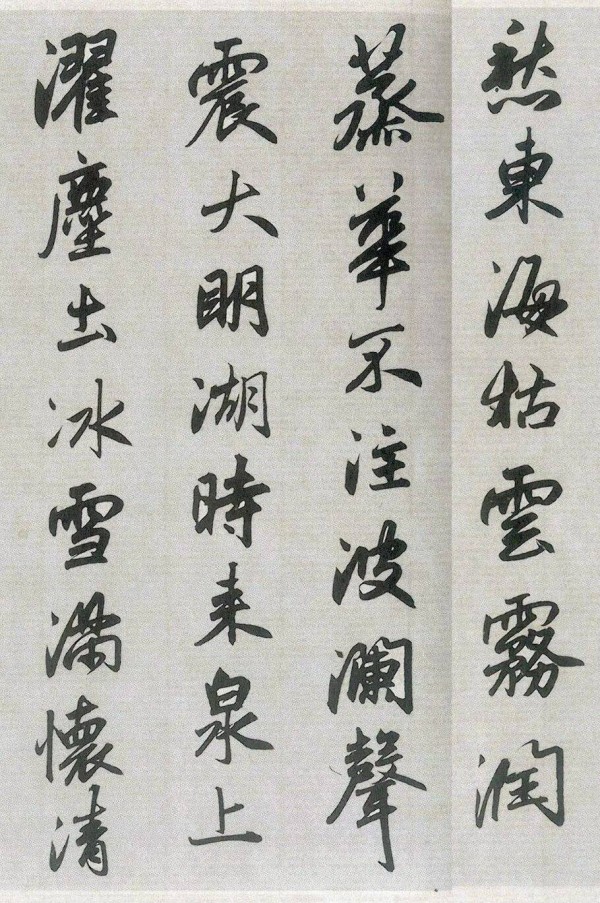 愁東海枯雲霧潤
蒸華不注波瀾聲
震大明湖時来泉上
濯塵土冰雪滿懷清